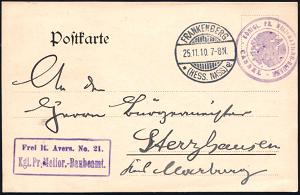 Postkarte
FRANKENBERG
25.11.10. 7-8N.
(HESS. NASS)
An den
Herrn Bürgermeister
Sterzhausen
Marburg
Frei lt. Avers. No. 21.
Kgl. Pr. Melior.-Bauamt.